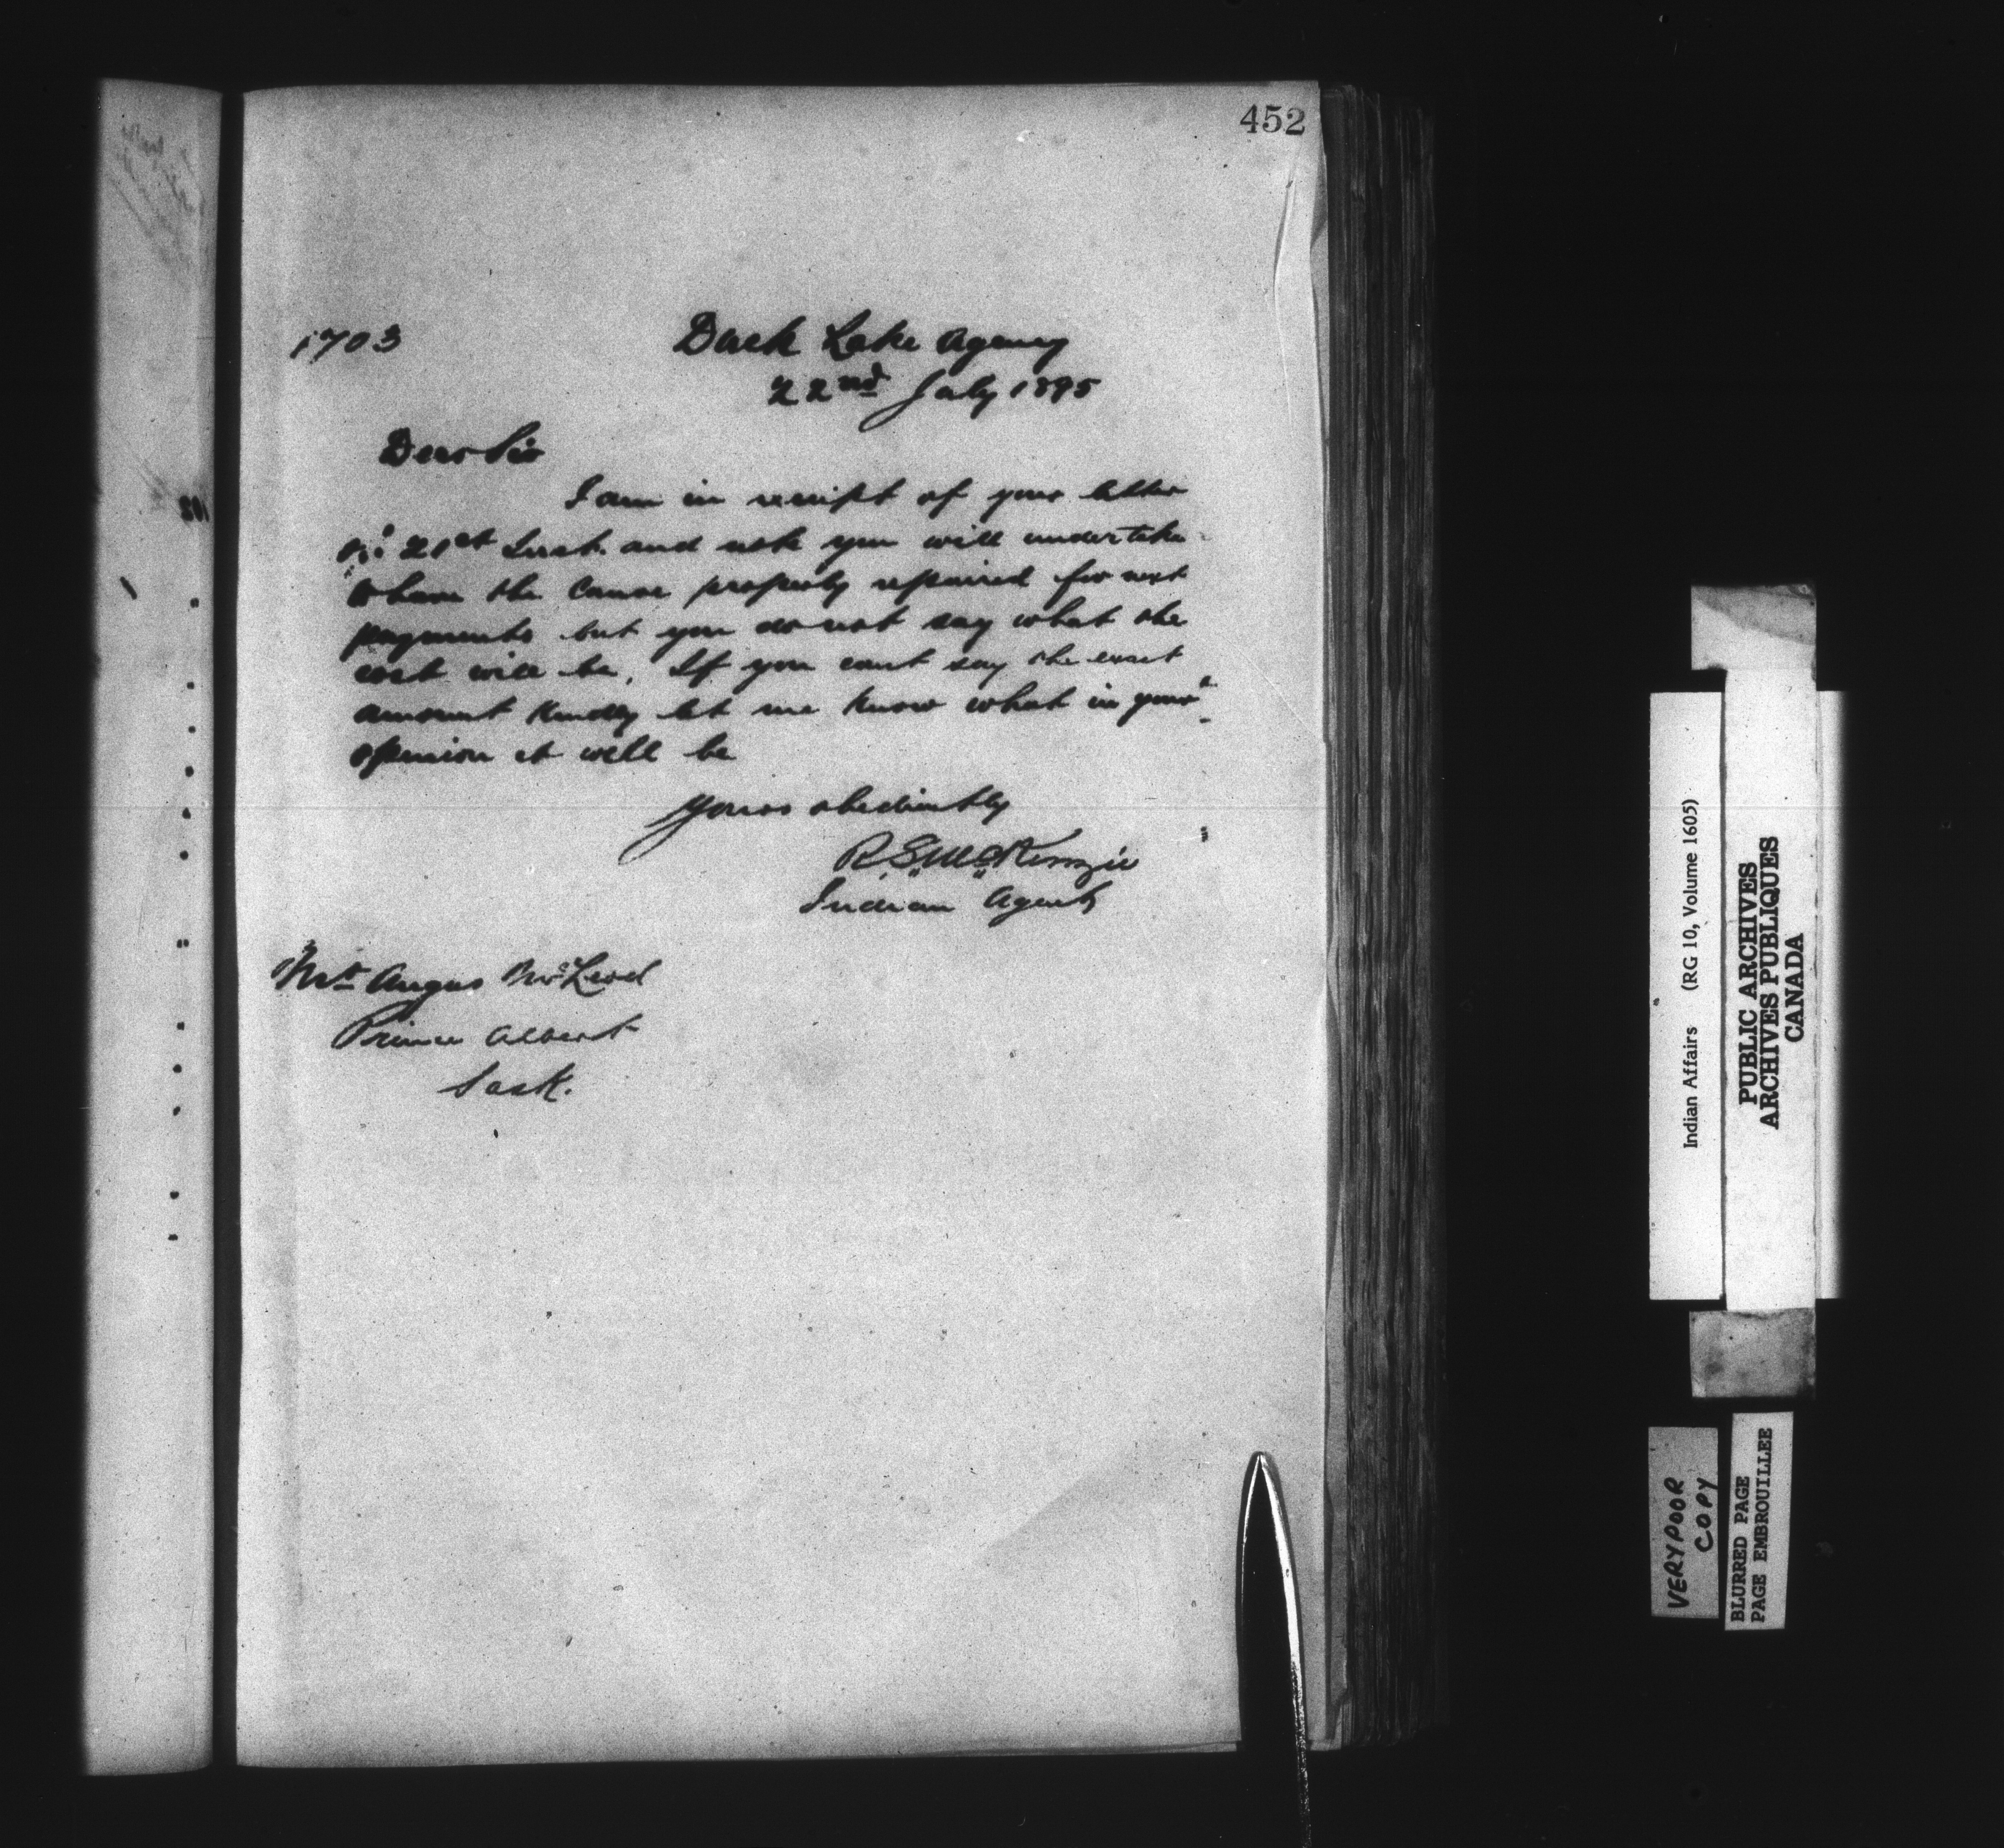 452
1703
Duck Lake Agency
22nd July 1895
Dear Sir
I am in receipt of your letter
21st Inst. and note you will undertake
to have the canoe properly repaired for next
payments but you do not say what the
cost will be. If you cant say the exact
amount kindly let me know what in your
opinion it will be
Yours obediently
R. S. McKenzie
Indian Agent
Mr Angus McLeod
Prince Albert
Sask.
Indian Affairs (RG 10, Volume 1605)
PUBLIC ARCHIVES
ARCHIVES PUBLIQUES
CANADA
VERY POOR
COPY
BLURRED PAGE
PAGE EMBROUILLEE